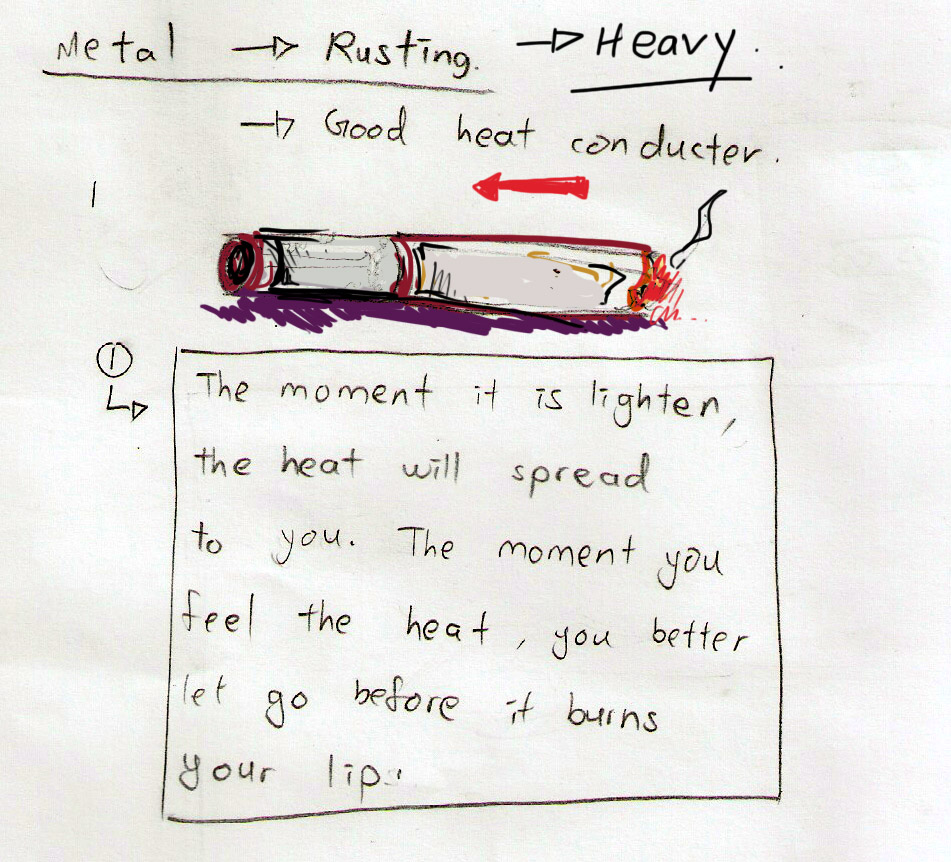 Metal → Rusting. → Heavy.
→ Good heat conducter.
1
①
The moment it is lighten,
the heat will spread
to you. The moment you
feel the heat, you better
let go before it burns
your lips.